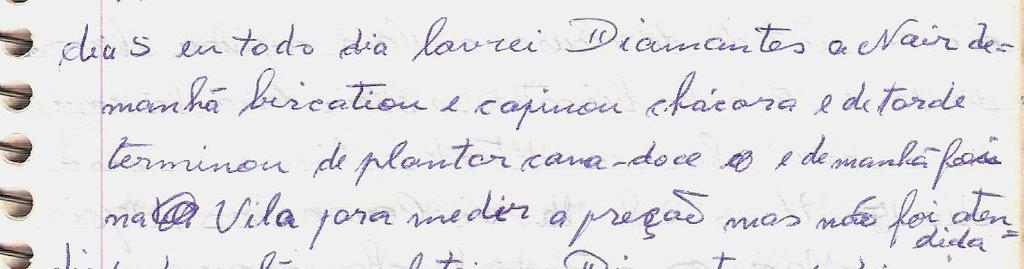 dia 5 eu todo dia lavrei Diamantes a Nair de=
manhã bircatiou e capinou chácara e de tarde
terminou de plantar cana-doce e de manhã foi
na Vila para medir a preção mas não foi aten=
dida